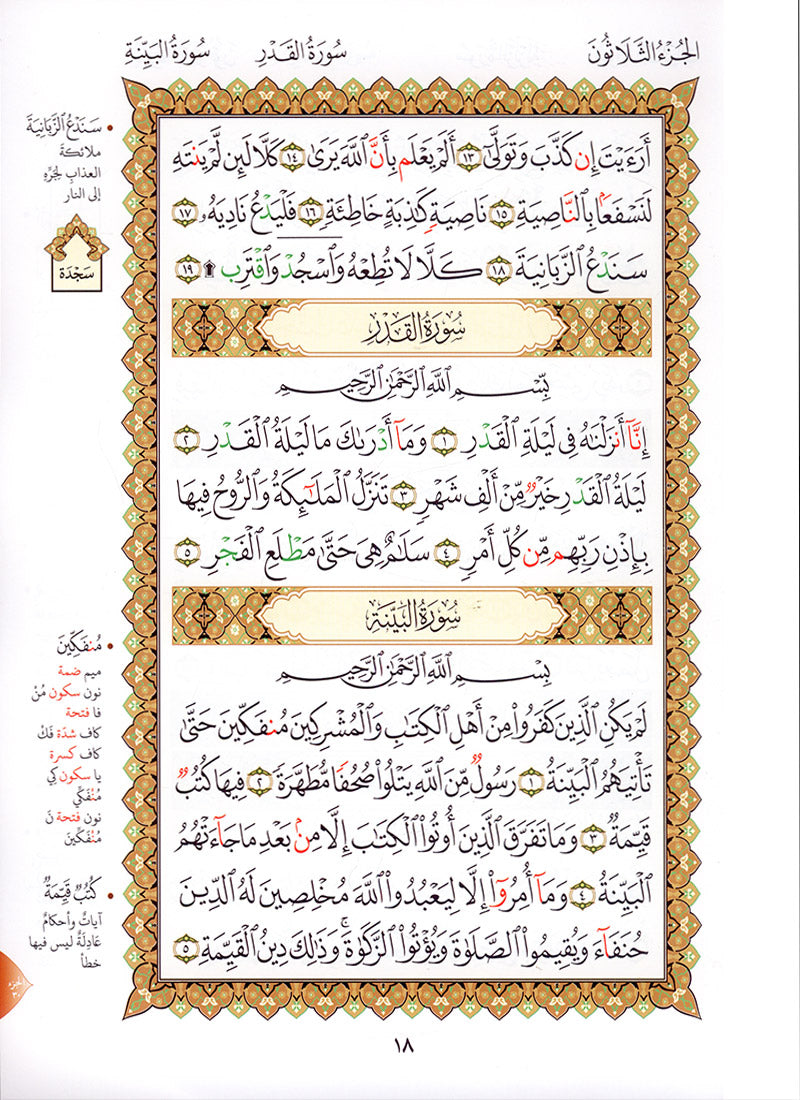 الجُزْءُ الثَّلَاثُونَ سُورَةُ القَدْرِ سُورَةُ البَيِّنَةِ
أَرَءَيْتَ إِن كَذَّبَ وَتَوَلَّىٰٓ ١٣ أَلَمْ يَعْلَم بِأَنَّ ٱللَّهَ يَرَىٰ ١٤ كَلَّا لَئِن لَّمْ يَنتَهِ
لَنَسْفَعَۢا بِٱلنَّاصِيَةِ ١٥ نَاصِيَةٍ كَٰذِبَةٍ خَاطِئَةٍ ١٦ فَلْيَدْعُ نَادِيَهُۥ ١٧
سَنَدْعُ ٱلزَّبَانِيَةَ ١٨ كَلَّا لَا تُطِعْهُ وَٱسْجُدْ وَٱقْتَرِب ۩ ١٩
سُورَةُ القَدْرِ
بِسْمِ ٱللَّهِ ٱلرَّحْمَٰنِ ٱلرَّحِيمِ
إِنَّآ أَنزَلْنَٰهُ فِى لَيْلَةِ ٱلْقَدْرِ ١ وَمَآ أَدْرَىٰكَ مَا لَيْلَةُ ٱلْقَدْرِ ٢
لَيْلَةُ ٱلْقَدْرِ خَيْرٌ مِّنْ أَلْفِ شَهْرٍ ٣ تَنَزَّلُ ٱلْمَلَٰٓئِكَةُ وَٱلرُّوحُ فِيهَا
بِإِذْنِ رَبِّهِم مِّن كُلِّ أَمْرٍ ٤ سَلَٰمٌ هِىَ حَتَّىٰ مَطْلَعِ ٱلْفَجْرِ ٥
سُورَةُ البَيِّنَةِ
بِسْمِ ٱللَّهِ ٱلرَّحْمَٰنِ ٱلرَّحِيمِ
لَمْ يَكُنِ ٱلَّذِينَ كَفَرُوا۟ مِنْ أَهْلِ ٱلْكِتَٰبِ وَٱلْمُشْرِكِينَ مُنفَكِّينَ حَتَّىٰ
تَأْتِيَهُمُ ٱلْبَيِّنَةُ ١ رَسُولٌ مِّنَ ٱللَّهِ يَتْلُوا۟ صُحُفًا مُّطَهَّرَةً ٢ فِيهَا كُتُبٌ
قَيِّمَةٌ ٣ وَمَا تَفَرَّقَ ٱلَّذِينَ أُوتُوا۟ ٱلْكِتَٰبَ إِلَّا مِنۢ بَعْدِ مَا جَآءَتْهُمُ
ٱلْبَيِّنَةُ ٤ وَمَآ أُمِرُوٓا۟ إِلَّا لِيَعْبُدُوا۟ ٱللَّهَ مُخْلِصِينَ لَهُ ٱلدِّينَ
حُنَفَآءَ وَيُقِيمُوا۟ ٱلصَّلَوٰةَ وَيُؤْتُوا۟ ٱلزَّكَوٰةَ ۚ وَذَٰلِكَ دِينُ ٱلْقَيِّمَةِ ٥
سَنَدْعُ ٱلزَّبَانِيَةَ
ملائكةَ
العذابِ لِجَرِّهِ
إلى النار
سَجْدَة
مُنفَكِّينَ
ميم ضمة
نون سكون مُنْ
فا فتحة
كاف شدّة فَكْ
كاف كسرة
يا سكون كِي
مُنْفَكِّي
نون فتحة نَ
مُنْفَكِّينَ
كُتُبٌ قَيِّمَةٌ
آياتٌ وأحكامٌ
عَادِلَةٌ ليس فيها
خطأ
الجزء
٣٠
١٨